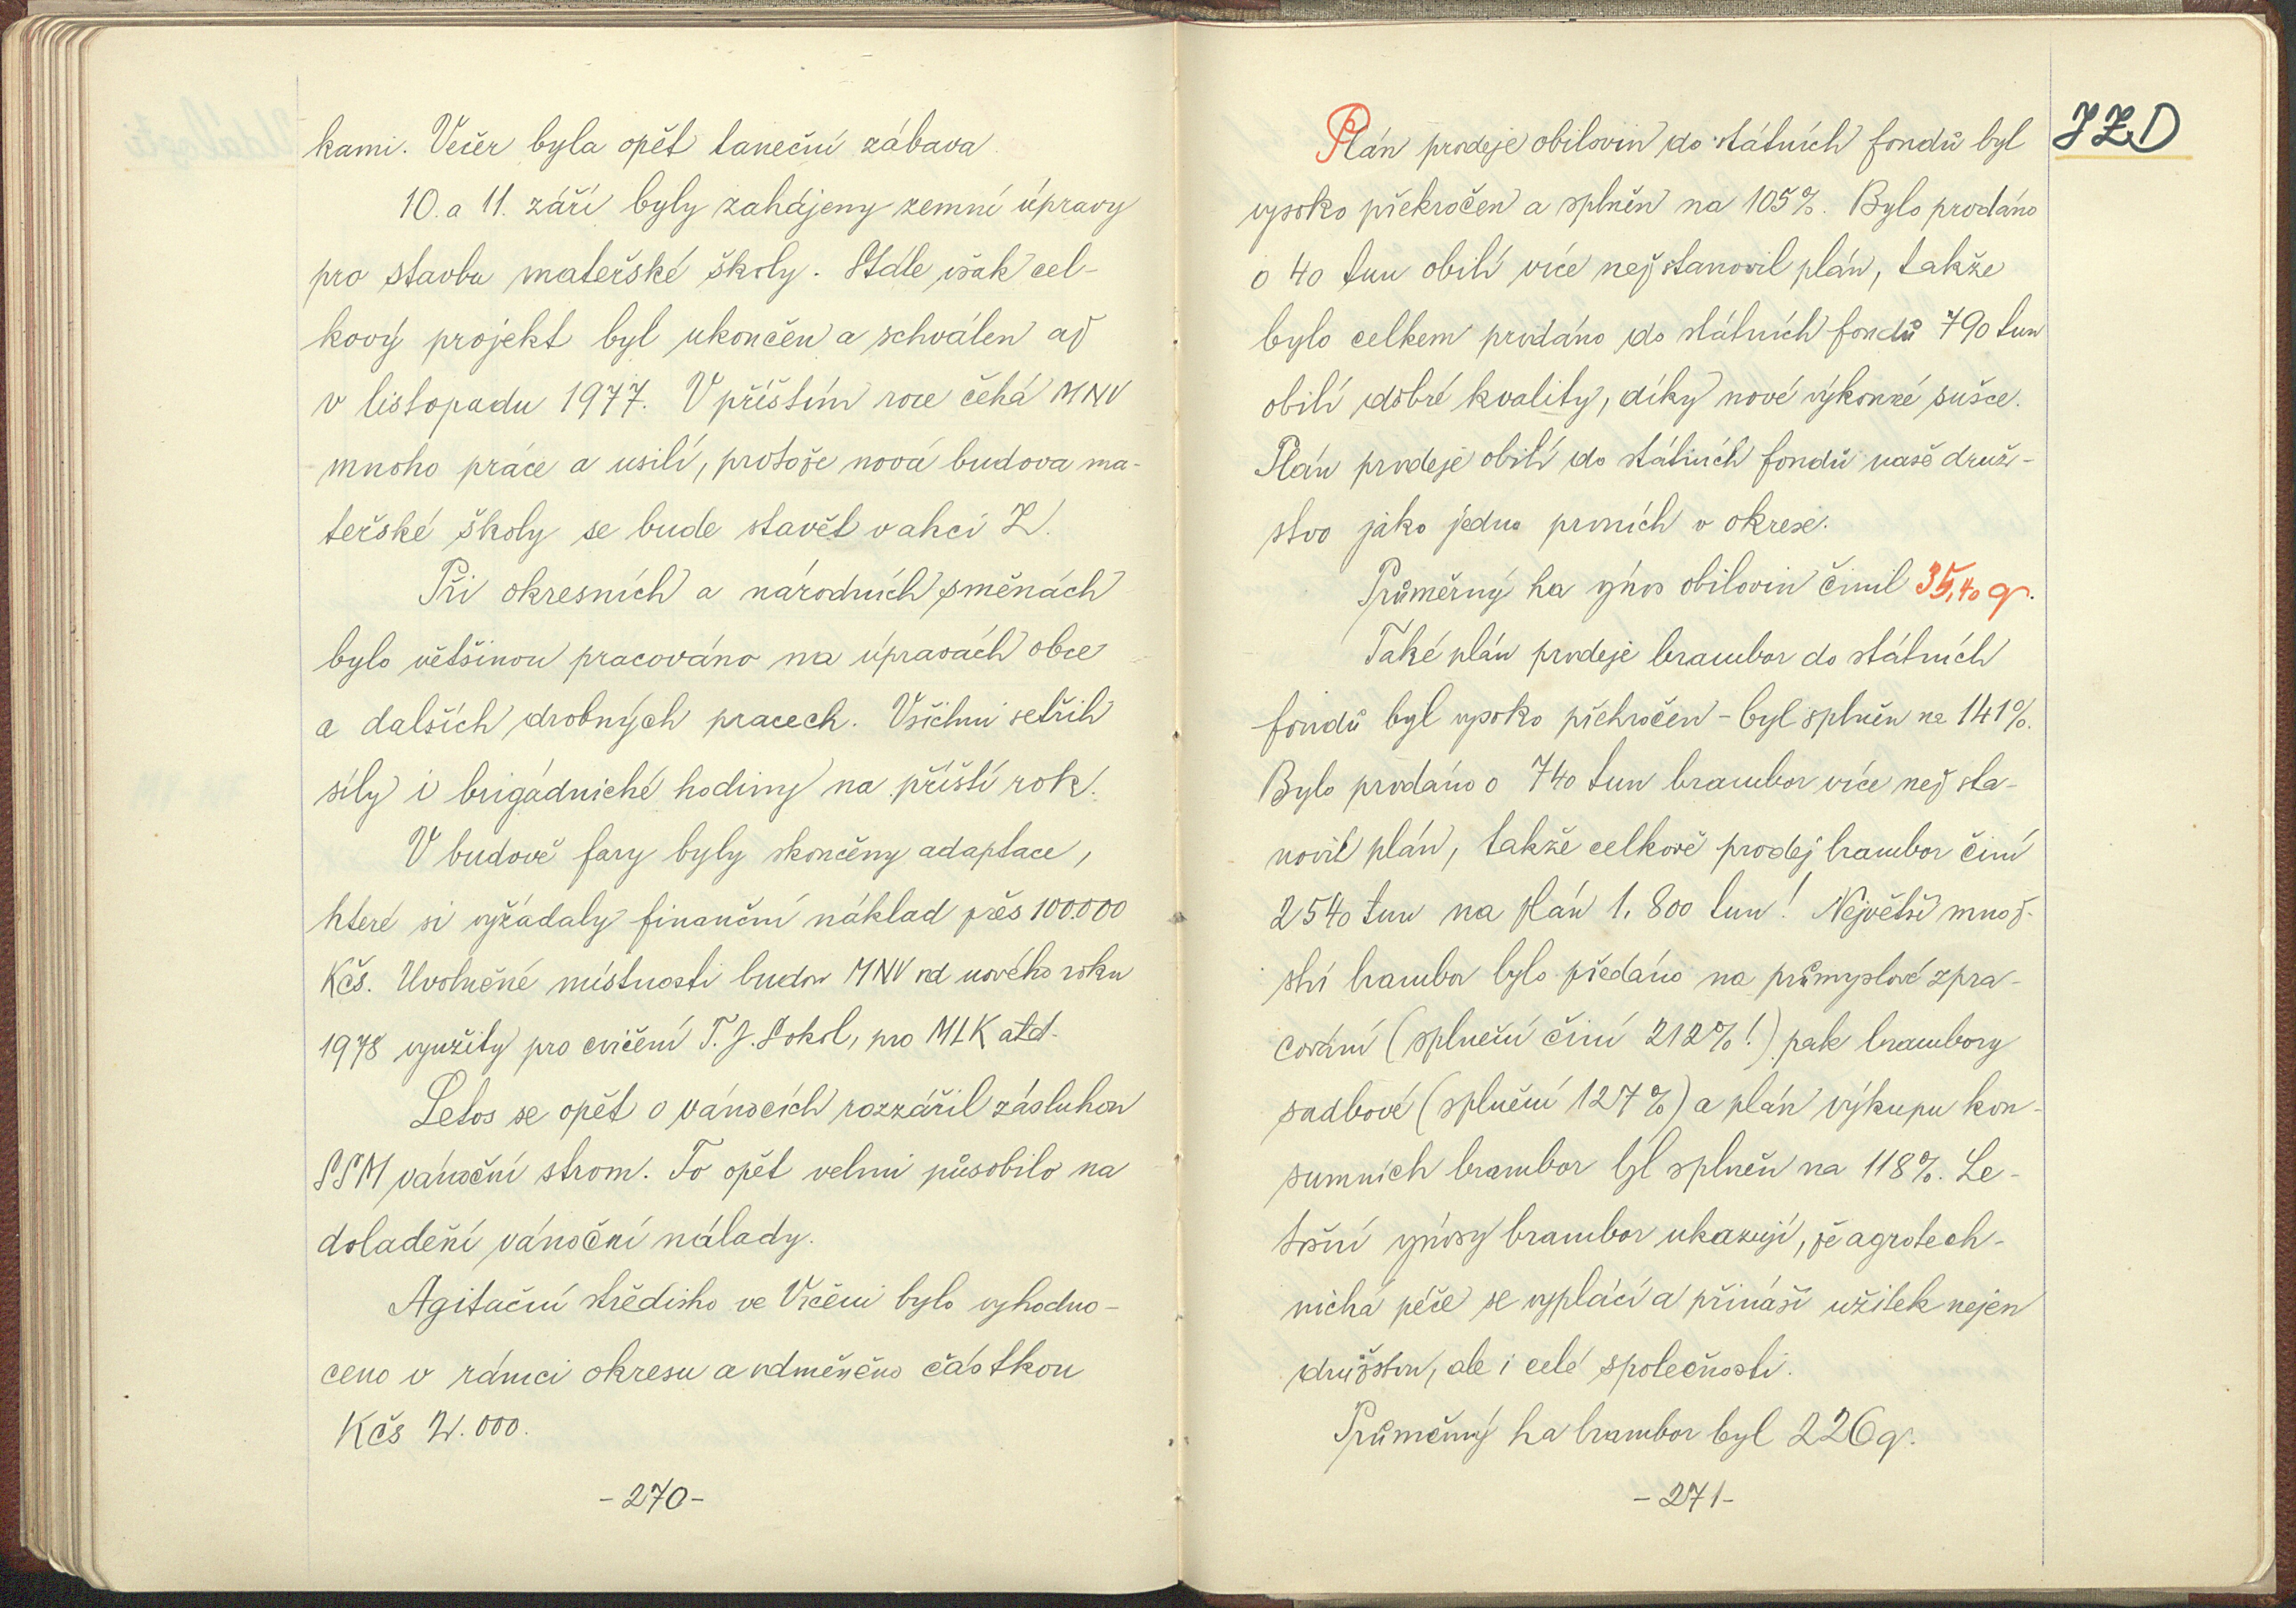 kami. Večer byla opět taneční zábava.
10. a 11. září byly zahájeny zemní úpravy
pro stavbu mateřské školy. Stále však cel-
kový projekt byl ukončen a schválen až
v listopadu 1977. V příštím roce čeká MNV
mnoho práce a usilí, protože nová budova ma-
teřské školy se bude stavět v akci Z.
Při okresních a národních směnách
bylo většinou pracováno na úpravách obce
a dalších drobných pracech. Všichni šetřili
síly i brigádnické hodiny na příští rok.
V budově fary byly skončeny adaptace,
které si vyžádaly finanční náklad přes 100.000
Kčs. Uvolněné místnosti budou MNV od nového roku
1978 využity pro cvičení T.J. Sokol, pro MLK atd.
Letos se opět o vánocích rozzářil zásluhou
SSM vánoční strom. To opět velmi působilo na
doladění vánoční nálady.
Agitační středisko ve Vlčení bylo vyhodno-
ceno v rámci okresu a odměněno částkou
Kčs 2.000.
-270-
JZD
Plán prodeje obilovin do státních fondů byl
vysoko překročen a splněn na 105%. Bylo prodáno
o 40 tun obilí více než stanovil plán, takže
bylo celkem prodáno do státních fondů 790 tun
obilí dobré kvality, díky nové výkonné sušce.
Plán prodeje obilí do státních fondů naše druž-
stvo jako jedno prvních v okrese.
Průměrný ha výnos obilovin činil 35,40 q.
Také plán prodeje brambor do státních
fondů byl vysoko překročen - byl splněn na 141%.
Bylo prodáno o 740 tun brambor více než sta-
novil plán, takže celkově prodej brambor činí
2540 tun na plán 1.800 tun! Největší množ-
ství brambor bylo předáno na průmyslové zpra-
cování (splnění činí 212%!) pak brambory
sadbové (splnění 127%) a plán výkupu kon-
sumních brambor byl splněn na 118%. Le-
tošní výnosy brambor ukazují, že agrotech-
nická péče se vyplácí a přináší užitek nejen
družstvu, ale i celé společnosti.
Průměrný ha brambor byl 226 q.
-271-